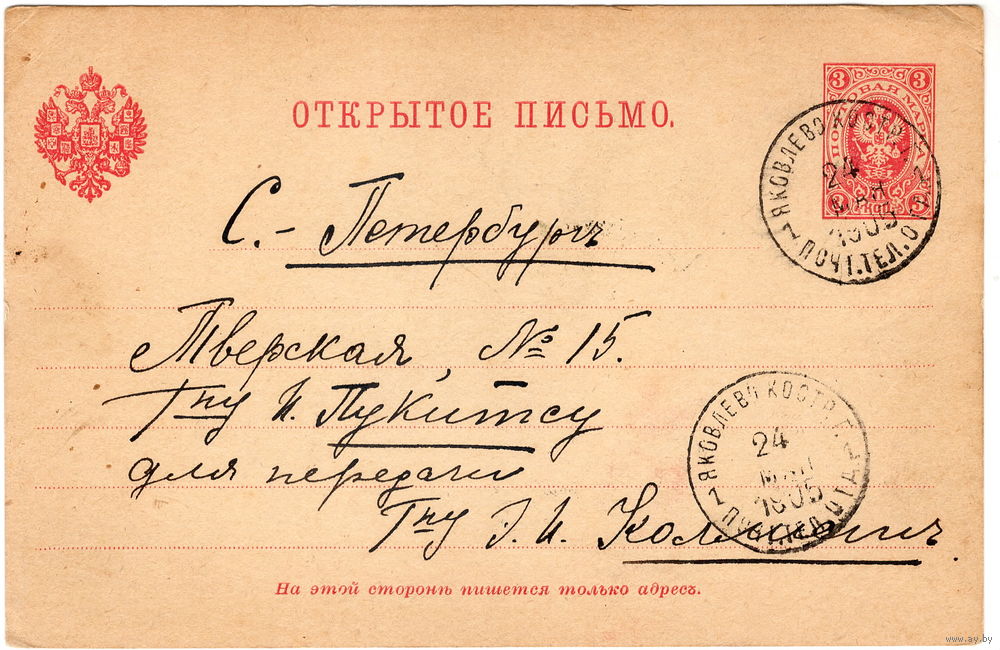 ОТКРЫТОЕ ПИСЬМО.
3 3
ПОЧТОВАЯ МАРКА
3 КОП. 3
ЯКОВЛЕВО КОСТР. Г.
24
МАЯ
1905
ПОЧТ. ТЕЛ. ОТД.
С.- Петербургъ
Тверская, № 15.
Гпу И. Пукитсу
для передачи
Гпу Э. И.
ЯКОВЛЕВО КОСТР. Г.
24
МАЯ
1905
ПОЧТ. ТЕЛ. ОТД.
На этой сторонѣ пишется только адресъ.
www.ay.by